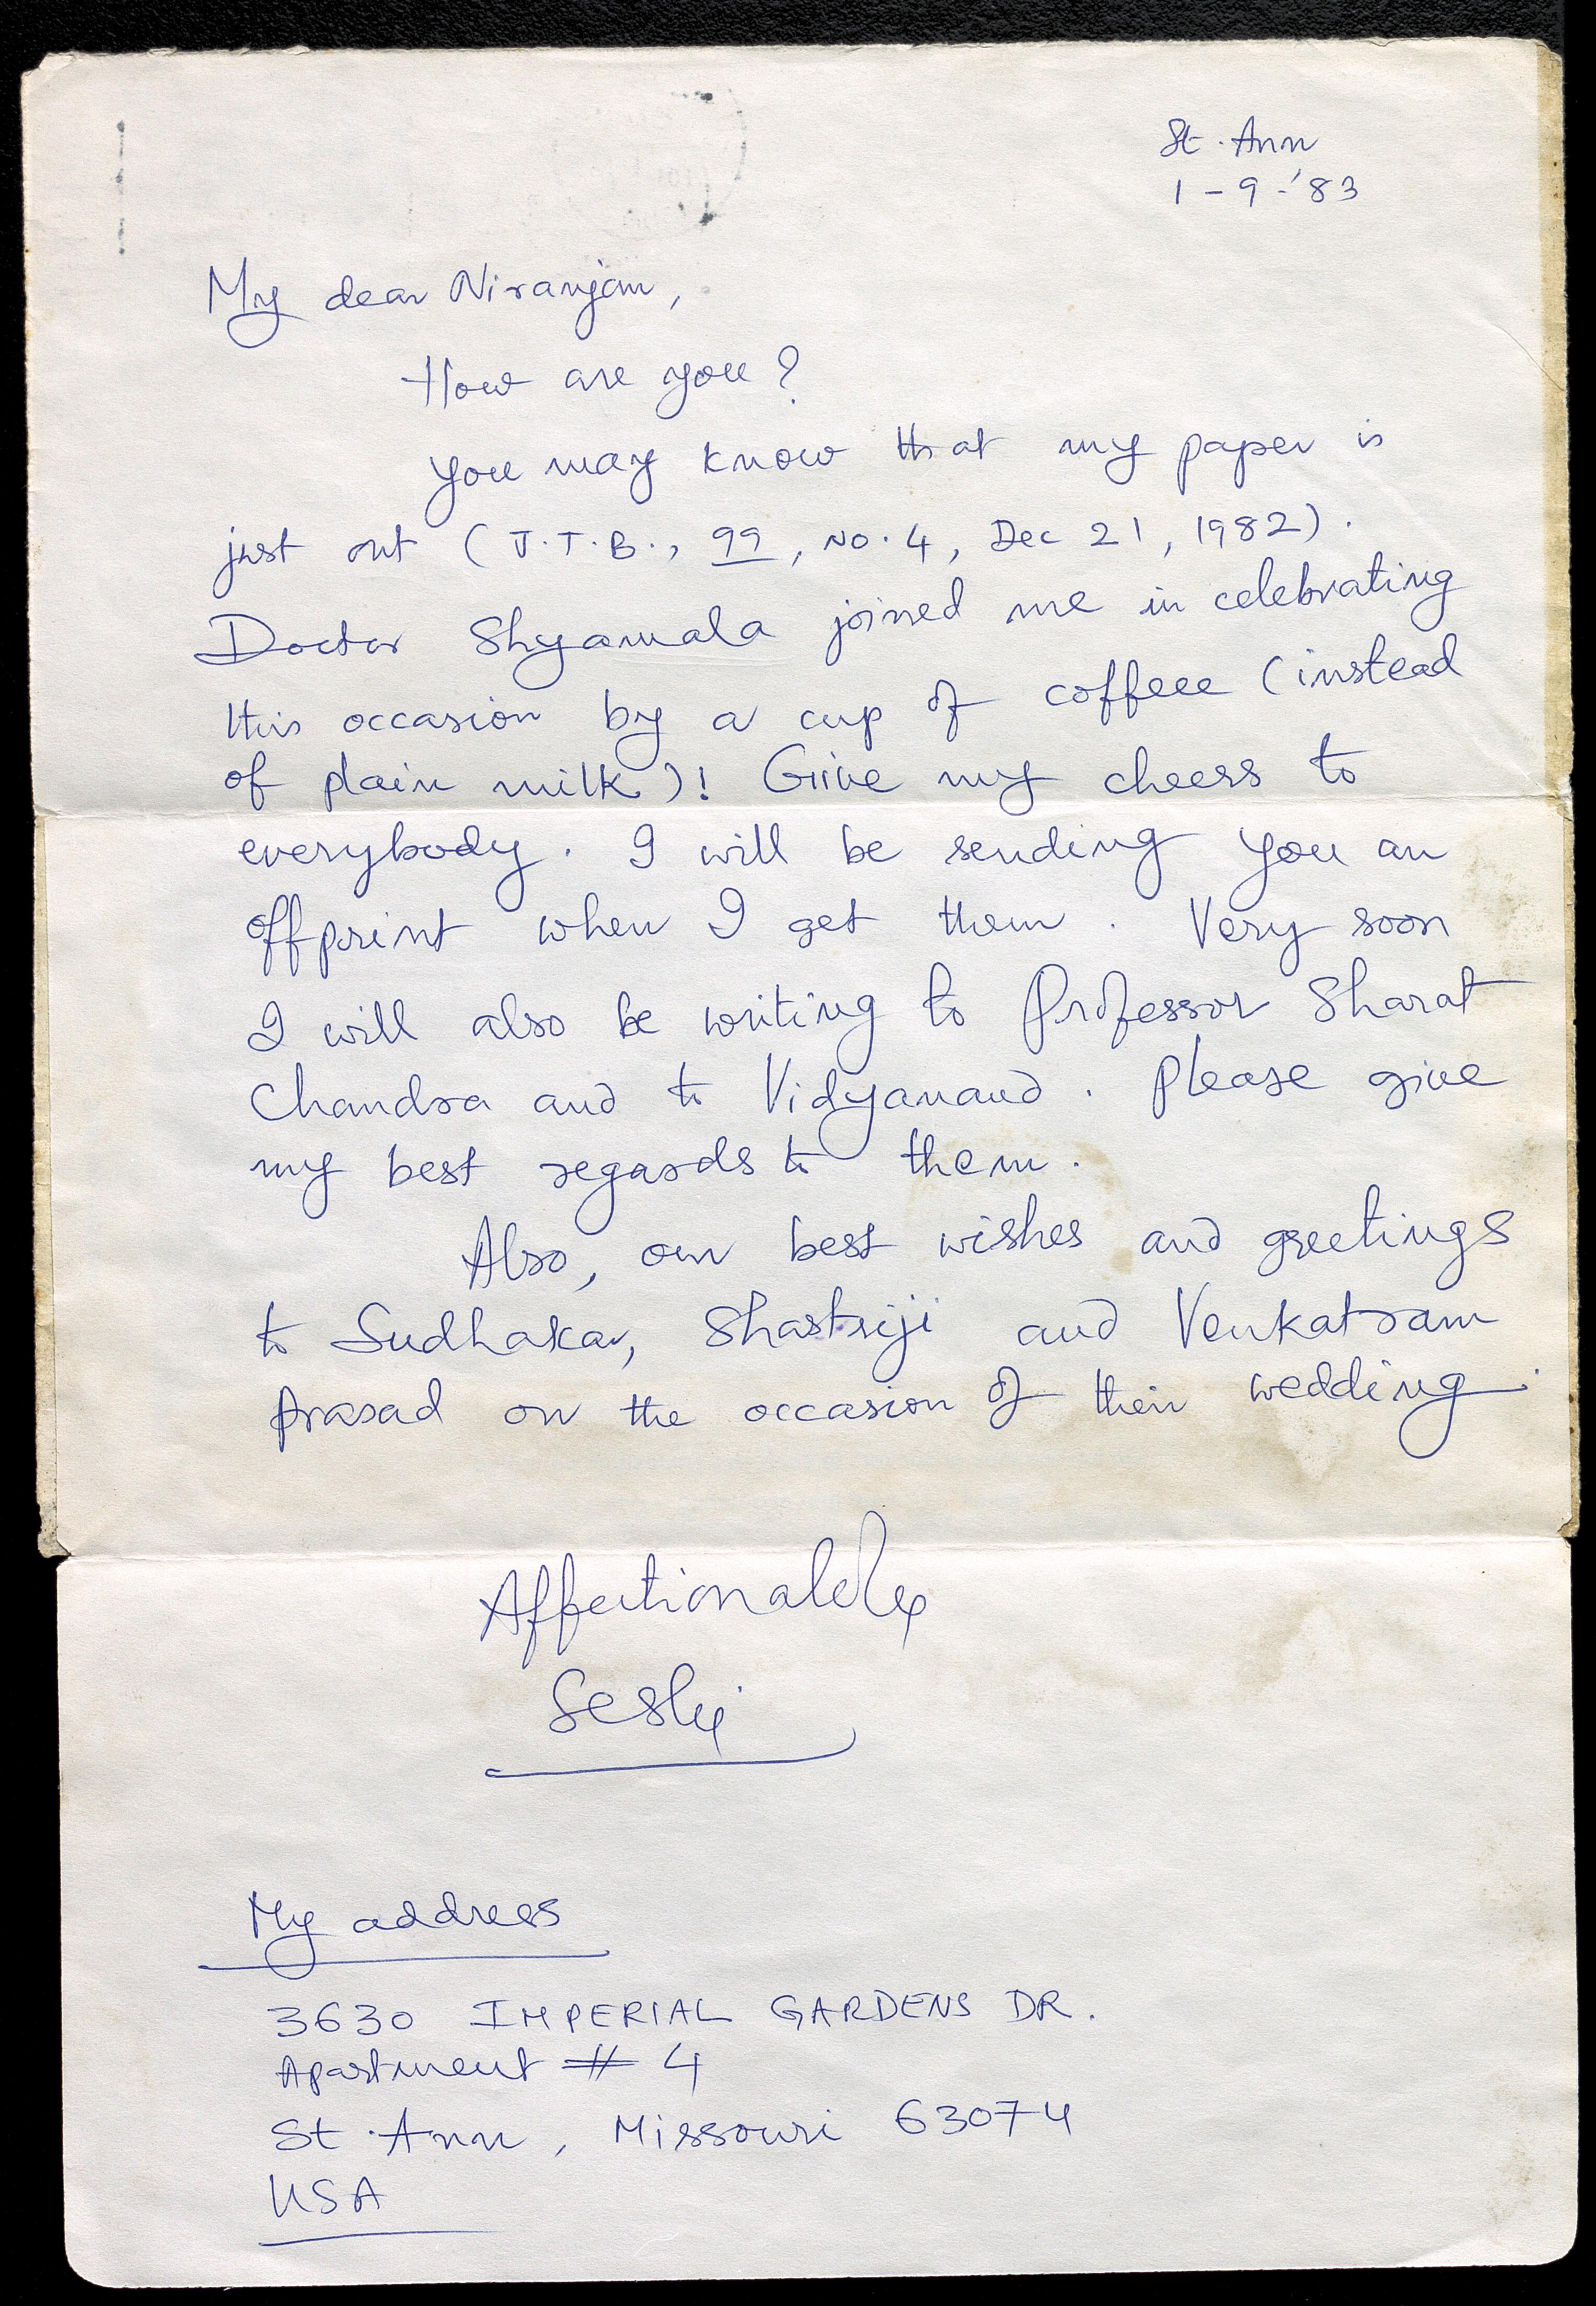 St. Ann
1-9-'83
My dear Niranjan,
How are you?
You may know that my paper is
just out (J.T.B., 99, No. 4, Dec 21, 1982).
Doctor Shyamala joined me in celebrating
this occasion by a cup of coffeee (instead
of plain milk)! Give my cheers to
everybody. I will be sending you an
offprint when I get them. Very soon
I will also be writing to Professor Sharat
Chandra and to Vidyanand. Please give
my best regards to them.
Also, our best wishes and greetings
to Sudhakar, Shastriji and Venkatram
Prasad on the occasion of their wedding.
Affectionately
Seshi
My address
3630 IMPERIAL GARDENS DR.
Apartment # 4
St. Ann, Missouri 63074
USA